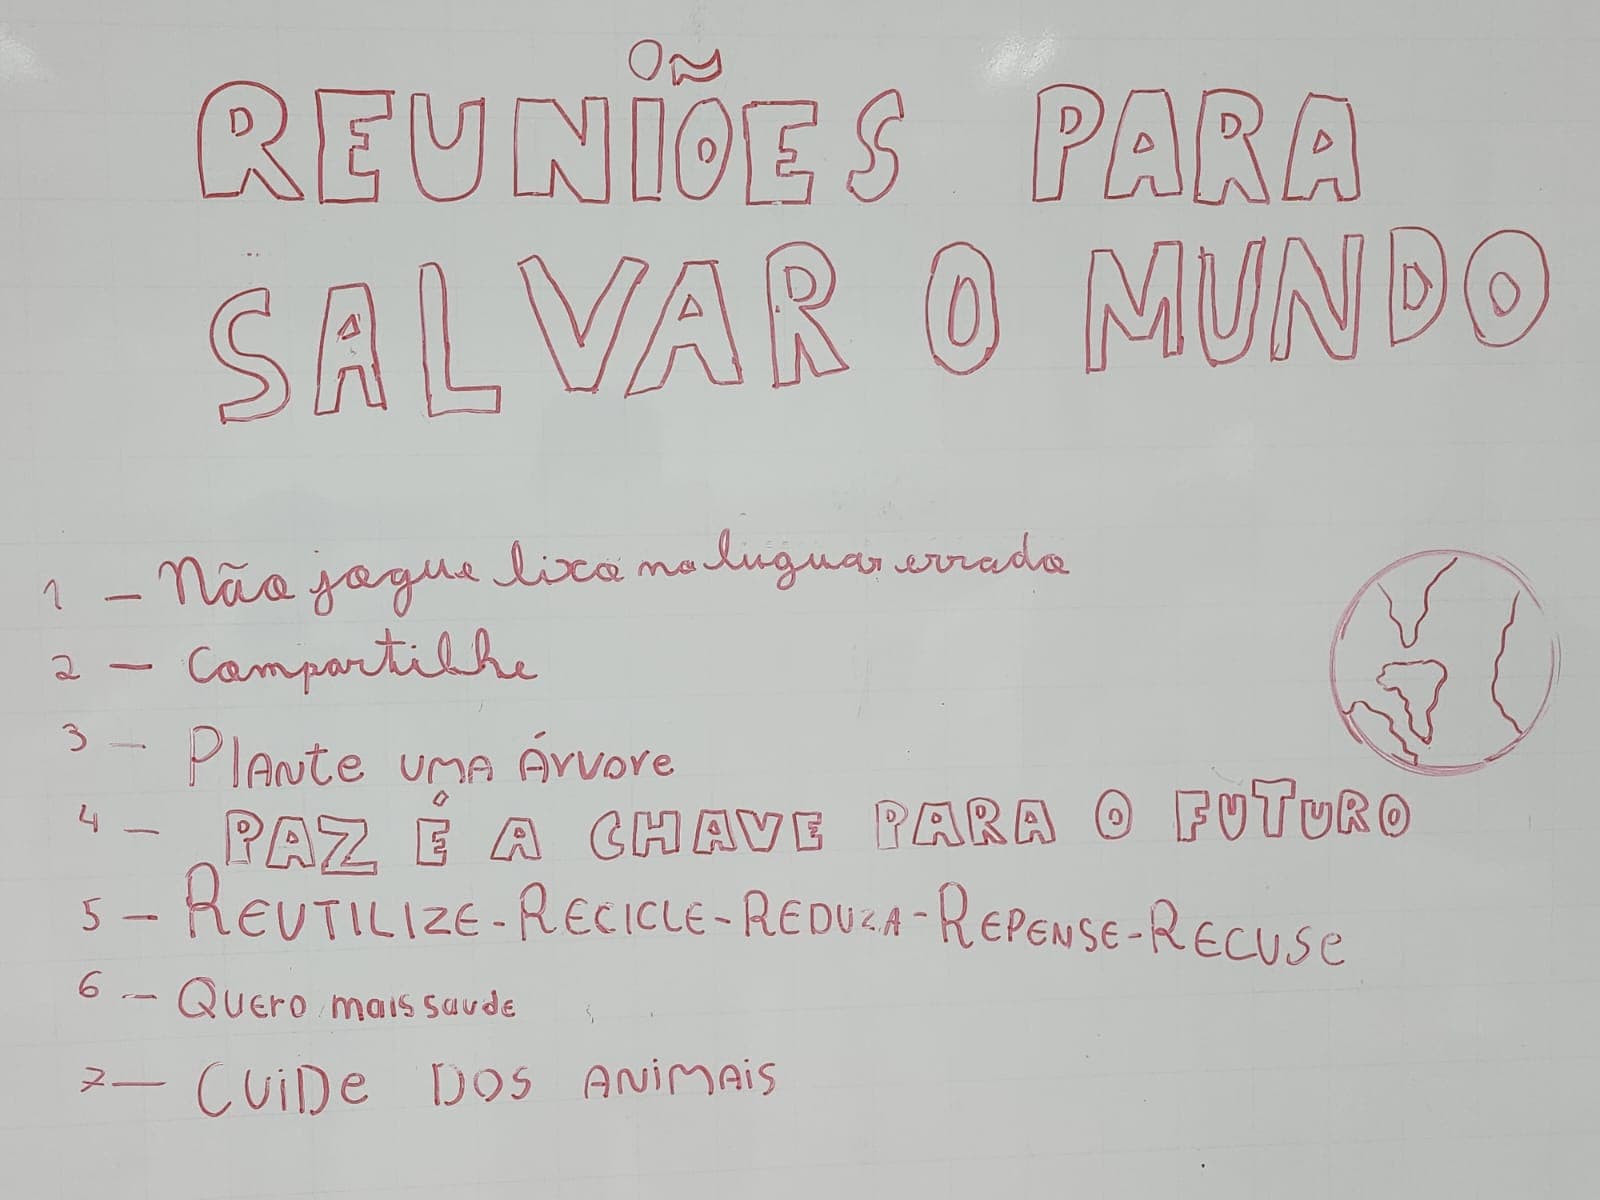 REUNIÕES PARA
SALVAR O MUNDO
1 - Não jogue lixo no luguar errado
2 - Compartilhe
3 - Plante uma árvore
4 - PAZ É A CHAVE PARA O FUTURO
5 - REUTILIZE-RECICLE-REDUZA-REPENSE-RECUSE
6 - Quero mais saude
7 - CUIDE DOS ANIMAIS